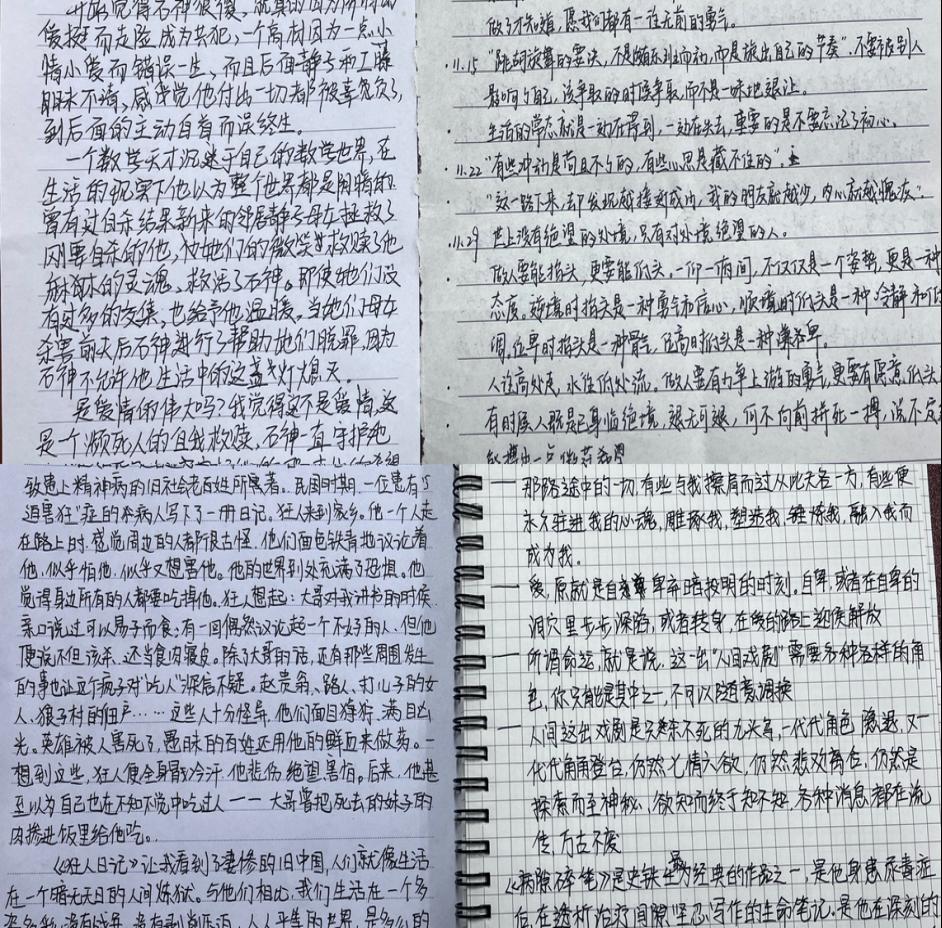 爱挺而走险成为共犯,一个高材因为一点小
情小爱而错误一生,而且后面静子和工藤
暧昧不清,感觉他付出一切都被辜负了,
到后面的主动自首而误终生。
一个数学天才沉迷于自己的数学世界,在
生活的现实下他以为整个世界都是阴暗的
曾有过自杀结果新来的邻居静子母女拯救了
刚要自杀的他,
麻木的灵魂、救活了石神。即使她们没
有过多的交集,也给予他温暖。当她们母女
杀害前夫后石神进行了帮助她们脱罪,因为
石神不允许他生活中的这盏灯熄灭。
是爱情的伟大吗?我觉得这不是爱情,这
是一个濒死人的自我救赎,石神一直守护她
做了才知道,愿我们都有一往无前的勇气。
·11.15 "跳胡旋舞的要决,不是顺乐班而动,而是旋出自己的节奏".不要被别人
影响了自己,该争取的时候争取,而不是一味地退让。
· 生活的常态就是一边在得到,一边在失去,重要的是不要忘记了初心。
·11.22 "有些冲动是苟且不了的,有些心思是藏不住的".
"这一路下来,却发现越接近成功,我的朋友就越少,内心就越愧疚".
·11.29 世上没有绝望的处境,只有对处境绝望的人。
· 做人要能抬头,更要能低头。一仰一俯间,不仅仅是一个姿势,更是一种
态度。逆境时抬头是一种勇气和信心,顺境时低头是一种冷静和低
调,位卑时抬头是一种骨气,位高时低头是一种谦卑。
· 人往高处走,水往低处流。做人要有力争上游的勇气,更要有愿意低头
· 有时候人既是已身临绝境,退无可退,何不向前拼死一搏,说不定
致患上精神病的旧社会老百姓所写著。民国时期,一位患有"
迫害狂"症的疾病人写下了一册日记。狂人来到家乡。他一个人走
在路上时,感觉周边的人都很古怪,他们面色铁青地议论着
他,似乎怕他,似乎又想害他。他的世界到处充满了恐惧。他
觉得身边所有的人都要吃掉他。狂人想起:大哥对我讲书的时候,
亲口说过可以易子而食;有一回偶然议论起一个不好的人,但他
便说不但该杀、还当食肉寝皮。除了大哥的话,还有那些周围发生
的事也让这个疯子对"吃人"深信不疑。赵贵翁、路人、打儿子的女
人、狼子村的佃户……这些人十分怪异,他们面目狰狞、满目凶
光。英雄被人害死了,愚昧的百姓还用他的鲜血来做药。一
想到这些,狂人便全身散冷汗,他悲伤、绝望、害怕。后来,他甚
至以为自己也在不知不觉中吃过人——大哥曾把死去的妹子的
肉掺进饭里给他吃。
《狂人日记》让我看到了凄惨的旧中国,人们就像生活
在一个暗无天日的人间炼狱。与他们相比,我们生活在一个多
— 那路途中的一切,有些与我擦肩而过从此天各一方,有些便
永久驻进我的心魂,雕琢我,塑造我,锤炼我,融入我而
成为我.
— 爱,原就是自卑弃暗投明的时刻.自卑,或者在自卑的
洞穴里步步深陷,或者转身,在爱的路上迎候解放
— 所谓命运,就是说,这一出"人间戏剧"需要各种各样的角
色,你只能是其中之一,不可以随意调换
— 人间这出戏剧是只杀不死的九头鸟,一代代角色隐退,又一
代代角色登台,仍然七情六欲,仍然悲欢离合,仍然是
探索而至神秘、欲知而终于知不知,各种消息都在流
传,万古不废
《病隙碎笔》是史铁生最为经典的作品之一,是他身患尿毒症
后,在透析治疗间隙坚忍写作的生命笔记.是他在深刻的